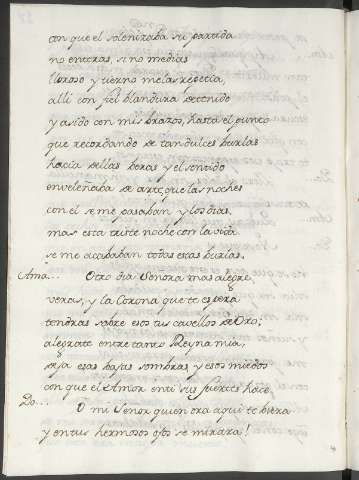 con que el solenizaba su partida
no enteras, si no medias
lloroso y tierno me las repetia,
alli con fiel blandura detenido
y asido con mis brazos, hasta el punto
que recordando de tan dulces burlas
hacia dellas veras y el sentido
enveleñaba de arte, que las noches
con el se me pasaban y los dias.
mas esta triste noche con la vida
se me acababan todas estas burlas.
Ama... Otro dia Señora mas alegre
veras, y la Corona que te espera
tendras sobre esos tus cavellos de Oro;
alegrate entretanto Reyna mia,
deja esas bajas sombras y esos miedos
con que el Amor en ti sus suertes hace.
Do... O mi Señor quien ora aqui te viera
y en tus hermosos ojos se mirara!